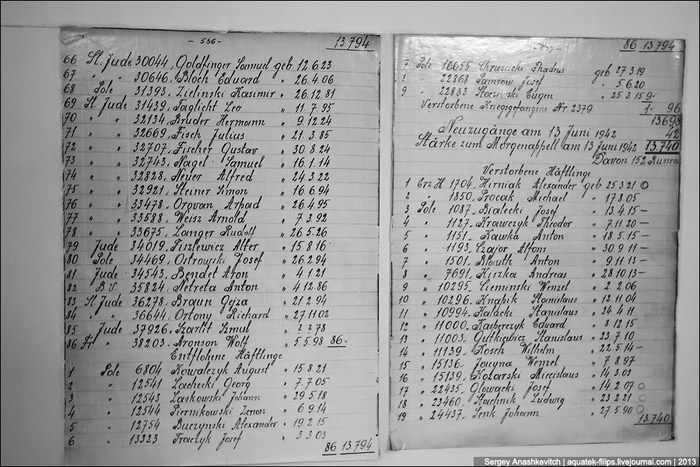 - 536 -
13.794
66 Sl. Jude 30044, Goldfinger Samuel geb 12.6.23
67 " " 30646, Bloch Eduard " 26.4.06
68 Pole 31393, Zielinski Kasimir " 26.12.81
69 Sl. Jude 31439, Taglicht Leo " 11.7.95
70 " " 32134, Bruder Hermann " 9.12.24
71 " " 32669, Fisch Julius " 21.3.85
72 " " 32707, Fischer Gustav " 30.8.24
73 " " 32743, Nagel Samuel " 16.1.14
74 " " 32828, Neuer Alfred " 24.3.22
75 " " 32921, Steiner Simon " 16.6.94
76 " " 33478, Orgvan Arpad " 26.4.95
77 " " 33588, Weisz Arnold " 7.3.92
78 " " 33675, Langer Rudolf " 26.5.26
79 Jude 34019, Fiszlewicz Alter " 15.8.16
80 Pole 34469, Ostrowski Josef " 26.2.94
81 Jude 34543, Bendet Aron " 4.1.21
82 B.V. 35824, Netreta Anton " 4.12.86
83 Sl. Jude 36278, Braun Geza " 21.2.94
84 " " 36644, Ortony Richard " 27.11.02
85 Jude 37926, Szmul " 2.2.78
86 Fr. " 38203, Aronson Wolf " 5.5.98 86.-
Entflohene Häftlinge
1 Pole 6804 Kowalczyk August " 15.8.21
2 " 12541 Lachecki Georg " 7.7.05
3 " 12543 Laskowski Johann " 29.5.18
4 " 12544 Piernikowski Zenon " 6.9.14
5 " 12754 Buczynski Alexander " 19.2.15
6 " 13323 Traczyk Josef " 3.3.03
86 13.794
86 13.794
7 Pole 16655 Chruscicki Thadeus geb 27.3.19
" 22868 Pamrow Josef " 5.6.20
9 " 22883 Stoczewski Eugen " 25.3.15 9.-
Verstorbene Kriegsgefangene Nr 2379 1.- 96
13698
Neuzugänge am 13 Juni 1942 42
Stärke zum Morgenappell am 13 Juni 1942 13.740
Davon 152 Russen
Verstorbene Häftlinge
1 Erz.H. 1704, Hirniak Alexander geb 25.3.21
2 " 1850, Procak Michael " 17.3.05
3 Pole 1087, Bialecki Josef " 13.4.15 -
4 " 1127, Krawczyk Theodor " 7.11.20 -
5 " 1151, Kawka Anton " 18.5.15 -
6 " 1193, Czajor Alfons " 30.9.11 -
7 " 1501, Anton " 9.11.13 -
8 " 7691, Kyszka Andreas " 28.10.13 -
9 " 10295, Cieminski Wenzel " 2.2.06
10 " 10296, Knapik Stanislaus " 12.11.04
11 " 10994, Kalacki Stanislaus " 24.4.11
12 " 11000, Kacberczyk Eduard " 8.12.15
13 " 11003, Gutkiewicz Stanislaus " 23.7.10
14 " 11139, Kosch Wilhelm " 22.5.14 -
15 " 15136, Wenzel " 7.8.97
16 " 15139, Kozarski Mieislaus " 14.3.03
17 " 22435, Glowacki Josef " 14.2.07
18 " 23460, Stachnik Ludwig " 23.2.21
19 " 24437, Senk Johann " 27.5.90
13.740
Sergey Anashkevitch | aquatek-filips.livejournal.com | 2013